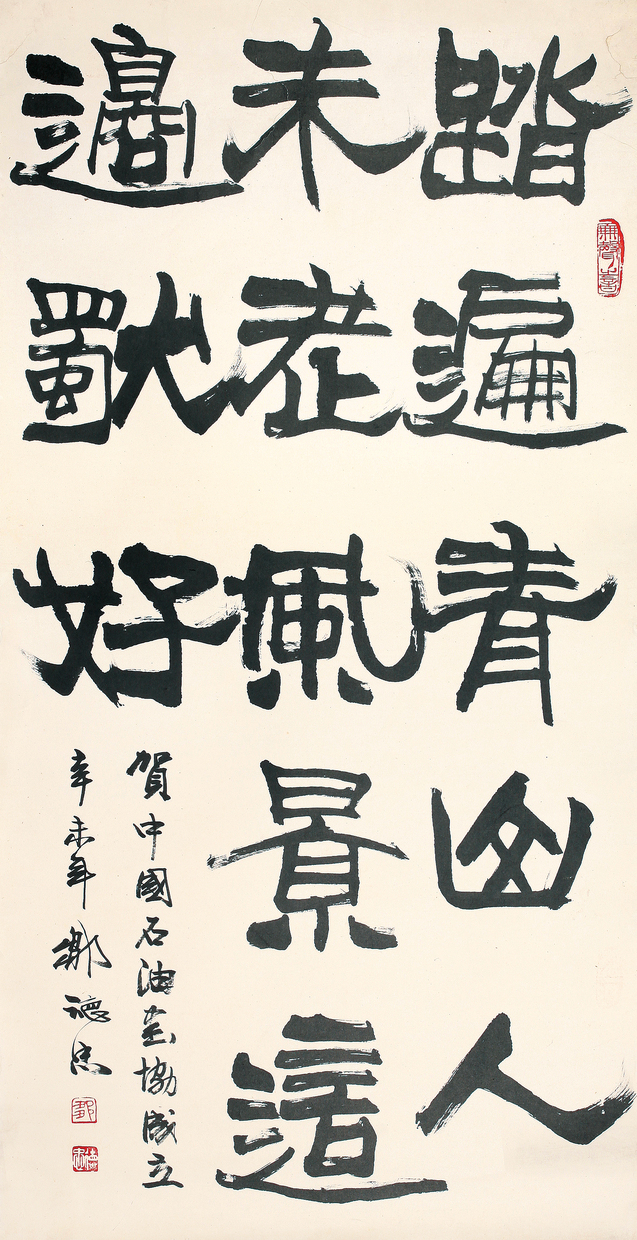 踏遍青山人
未老風景這
邊獨好
賀中國石油書協成立
辛未年鄒德忠